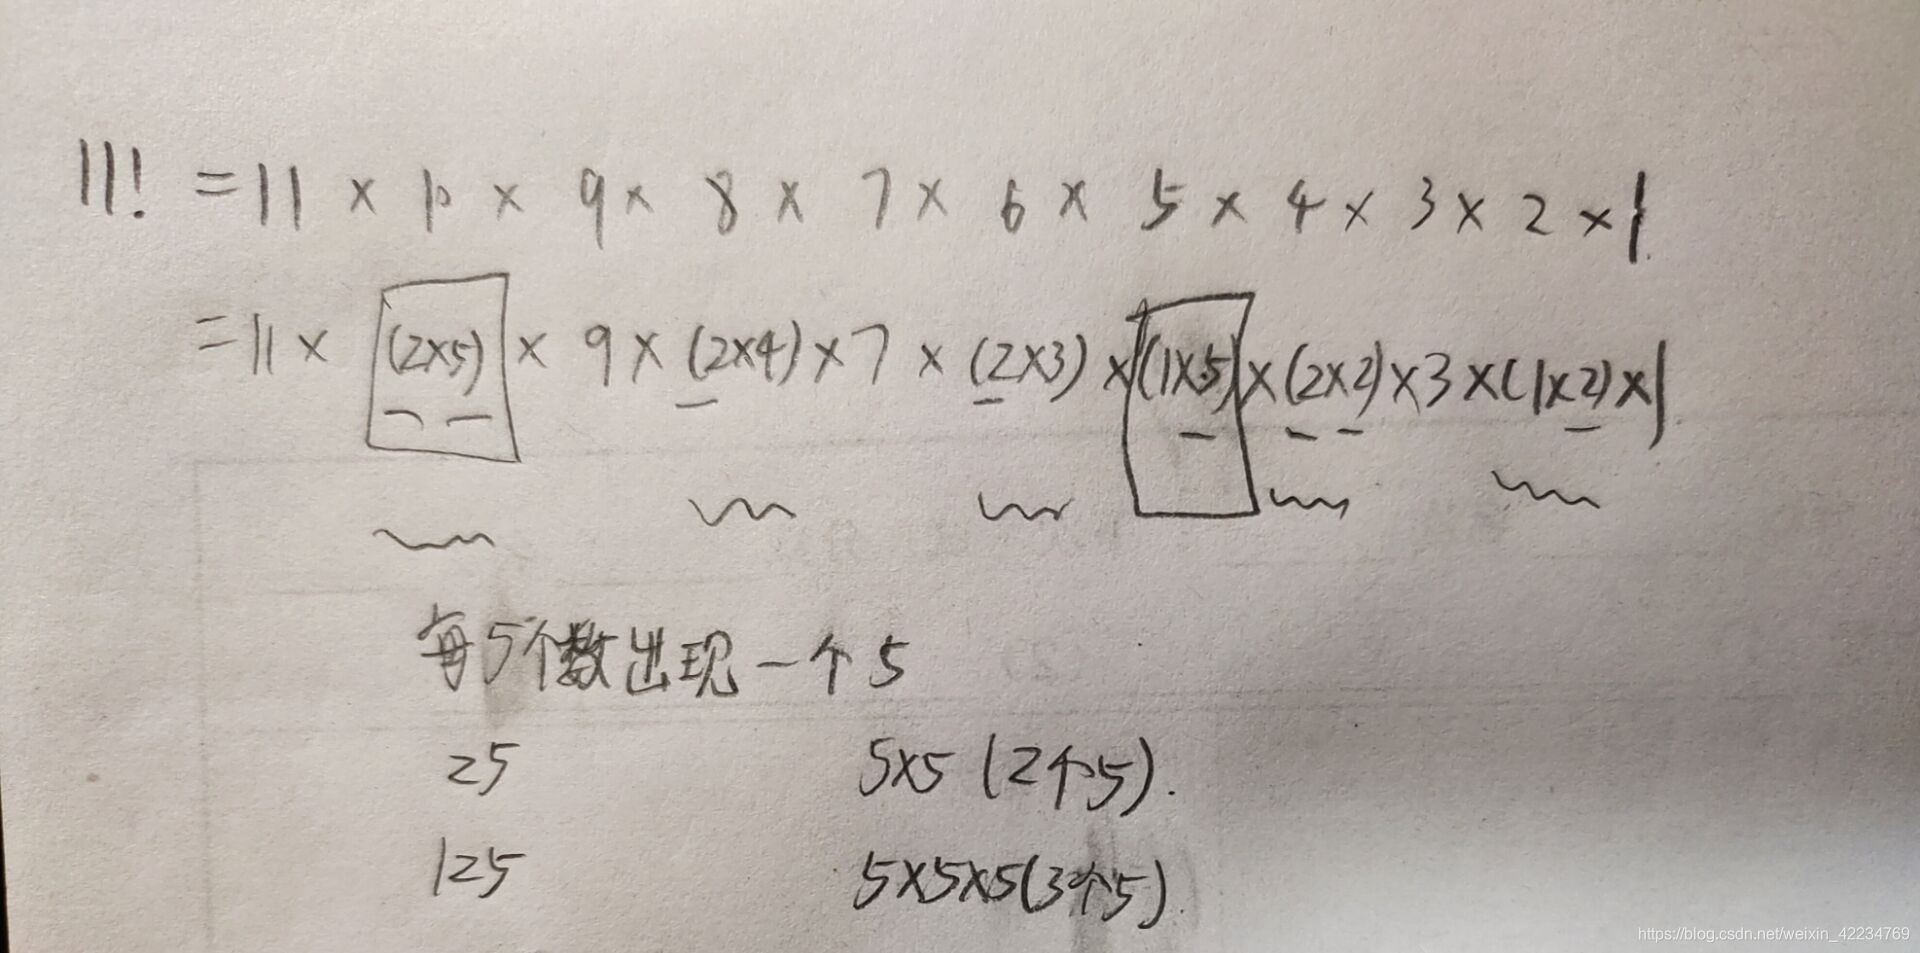 11! = 11 × 10 × 9 × 8 × 7 × 6 × 5 × 4 × 3 × 2 × 1
= 11 × (2×5) × 9 × (2×4) × 7 × (2×3) × (1×5) × (2×2) × 3 × (1×2) × 1
每5个数出现一个5
25 5×5 (2个5).
125 5×5×5(3个5).
https://blog.csdn.net/weixin_42234769